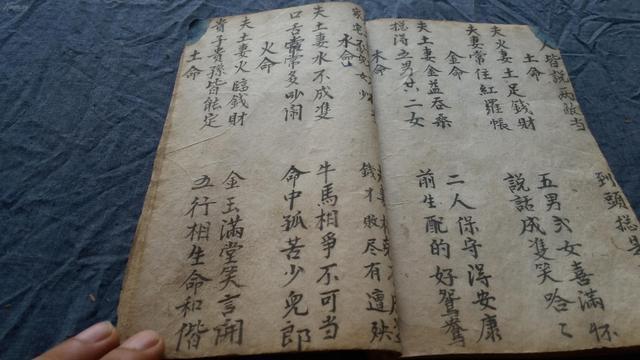 人皆說兩敵当 到頭
土命
夫火妻土足錢財 五男弍女喜滿怀
夫妻常住紅羅帳 說話成雙笑哈〻
金命
夫土妻金益吞桑 二人保守得安康
摠得五男共二女 前生配的好鴛鴦
木命
女少 錢才敗尽有遭殃
水命
夫土妻水不成雙 牛馬相爭不可当
口舌常常多吵闹 命中孤苦少兒郎
火命
夫土妻火臨錢財 金玉滿堂笑言開
貴子貴孫皆能定 五行相生命和偕
土命